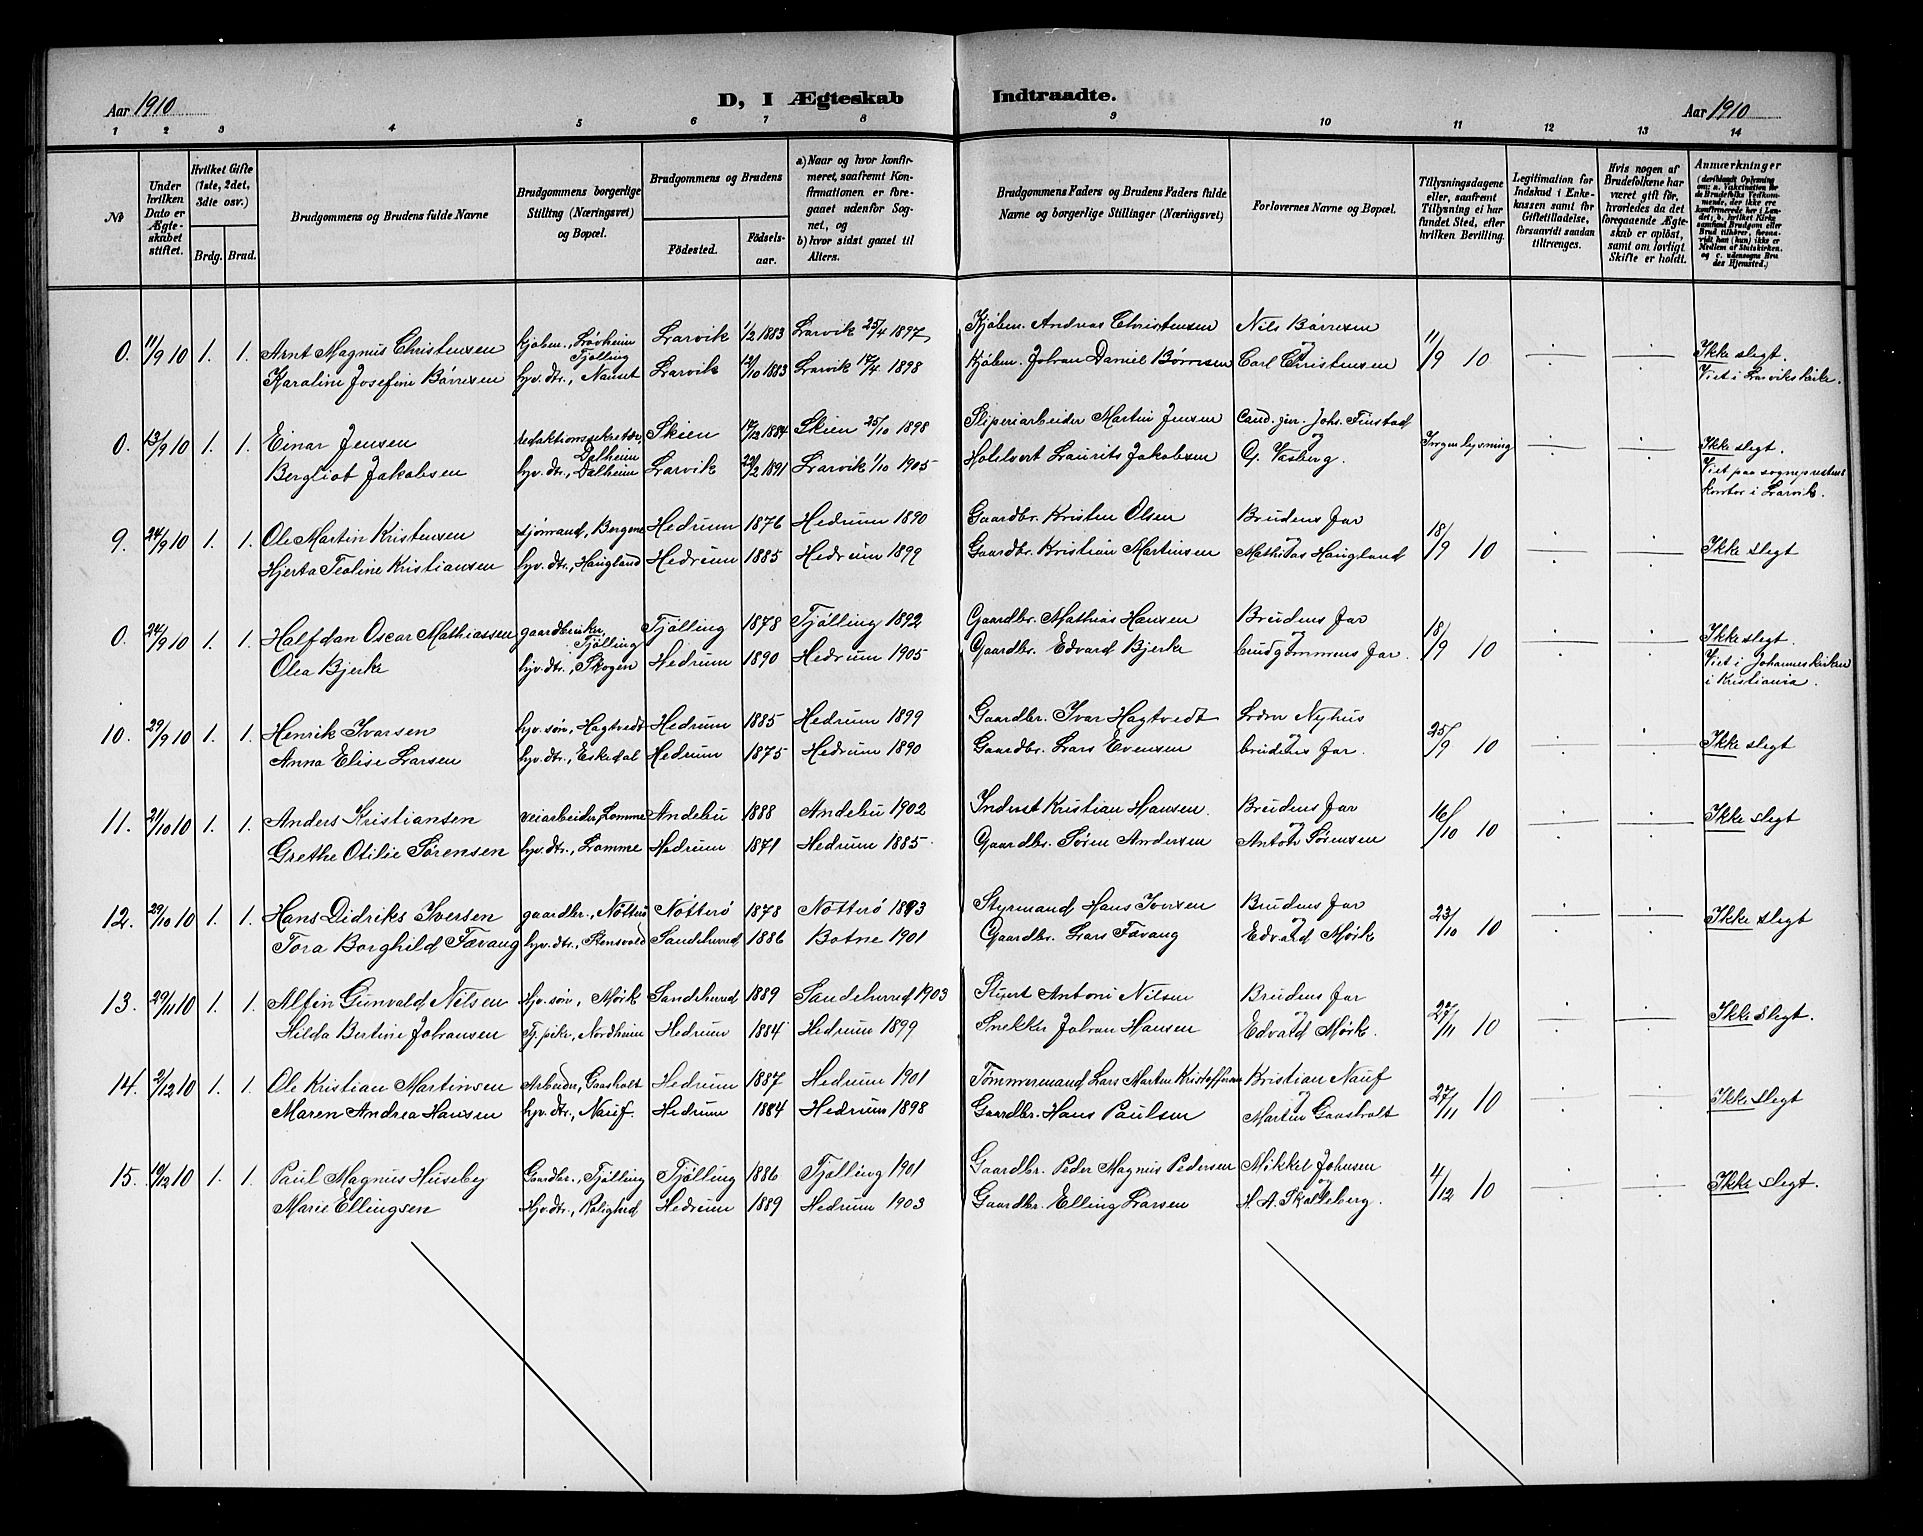 Aar 1910
D, I Ægteskab Indtraadte.
Aar 1910
1 2 3 4 5 6 7 8 9 10 11 12 13 14
No
Under hvilken Dato er Ægteskabet stiftet.
Hvilket Gifte (1ste, 2det, 3die osv.)
Brdg. Brud.
Brudgommens og Brudens fulde Navne
Brudgommens borgerlige Stilling (Næringsvei) og Bopæl.
Brudgommens og Brudens
Födested.
Födsels-aar.
a) Naar og hvor konfirmeret, saafremt Konfirmationen er foregaaet udenfor Sognet, og
b) hvor sidst gaaet til Alters.
Brudgommens Faders og Brudens Faders fulde Navne og borgerlige Stillinger (Næringsvei)
Forlovernes Navne og Bopæl.
Tillysningsdagene eller, saafremt Tillysning ei har fundet Sted, efter hvilken Bevilling.
Legitimation for Indskud i Enkekassen samt for Giftetilladelse, forsaavidt saadan tiltrænges.
Hvis nogen af Brudefolkene har været gift før, hvorledes da det foregaaende Ægteskab er oplöst, samt om lovligt Skifte er holdt.
Anmærkninger
0. 11/9 10 1. 1. Arnt Magnus Christensen kjøbm., Løvheim Tjølling Larvik 1/2 1883 Larvik 25/4 1897 Kjøbm. Andreas Christensen Nils Børresen 11/9 10 Ikke slegt.
Karoline Josefine Børresen hjv. dtr., Nanset Larvik 12/10 1883 Larvik 17/4 1898 Kjøbm. Johan Daniel Børresen og Carl Christensen Viet i Larviks kirke.
0. 13/9 10 1. 1. Einar Jensen redaktionssekretær, Dalheim Skien 17/12 1884 Skien 25/10 1898 Sliperiarbeider Martin Jensen Cand. jur. Johs. Finstad Ingen lysning Ikke slegt.
Bergliot Jakobsen hjv. dtr., Dalheim Larvik 22/2 1891 Larvik 1/10 1905 Holtvert Laurits Jakobsen og G. Vasberg. Viet paa sogneprestens
kontor i Larvik.
9. 24/9 10 1. 1. Ole Martin Kristensen sjømand, Bergene Hedrum 1876 Hedrum 1890 Gaardbr. Kristen Olsen Brudens far 18/9 10 Ikke slegt
Hjerta Teoline Kristiansen hjv. dtr., Haugland Hedrum 1885 Hedrum 1899 Gaardbr. Kristian Martinsen og Mathias Haugland
0. 24/9 10 1. 1. Halfdan Oscar Mathiassen gaardbruker, Tjølling Tjølling 1878 Tjølling 1892 Gaardbr. Mathias Hansen Brudens far 18/9 10 Ikke slegt.
Olea Bjerke hjv. dtr., Skogen Hedrum 1890 Hedrum 1905 Gaardbr. Edvard Bjerke og brudgommens far. Viet i Johanneskirken
i Kristiania.
10. 29/9 10 1. 1. Henrik Ivarsen hjv. søn, Hagtvedt Hedrum 1885 Hedrum 1899 Gaardbr. Ivar Hagtvedt Nyhus 25/9 10 Ikke slegt
Anna Elise Larsen hjv. dtr., Eskedal Hedrum 1875 Hedrum 1890 Gaardbr. Lars Evensen og brudens far.
11. 21/10 10 1. 1. Anders Kristiansen veiarbeider, Lomme Andebu 1888 Andebu 1902 Inderst Kristian Hansen. Brudens far 16/10 10 Ikke slegt
Grethe Otilie Sørensen hjv. dtr., Lomme Hedrum 1871 Hedrum 1885. Gaardbr. Søren Andersen og Anton Sørensen
12. 29/10 10 1. 1. Hans Didriks Iversen gaardbr., Nøtterø Nøtterø 1878 Nøtterø 1893 Styrmand Hans Iversen Brudens far 23/10 10 Ikke slegt
Tora Borghild Favang hjv. dtr., Stensvold Sandeherred 1886 Botne 1901 Gaardbr. Lars Favang og Edvard Mørk
13. 29/11 10 1. 1. Alfin Gunvald Nilsen Hjv. søn, Mørk Sandeherred 1889 Sandeherred 1903 Stuert Antoni Nilsen Brudens far 27/11 10 Ikke slegt.
Hilda Bertine Johansen Tj. pike, Nordheim Hedrum 1884 Hedrum 1899 Snekker Johan Hansen og Edvard Mørk.
14. 2/12 10 1. 1. Ole Kristian Martinsen Arbeider, Gaasholt Hedrum 1887 Hedrum 1901 Tømmermand Lars Martin Kristoffersen Kristian Nauf 27/11 10 Ikke slegt
Maren Andrea Hansen hjv. dtr., Nauf. Hedrum 1884 Hedrum 1898 Gaardbr. Hans Paulsen og Martin Gaasholt
15. 19/12 10 1. 1. Paul Magnus Huseby Gaardbr., Tjølling Tjølling 1886 Tjølling 1901 Gaardbr. Peder Magnus Pedersen Mikkel Johnsen 4/12 10 Ikke slegt.
Marie Ellingsen Hjv. dtr., Rolighed Hedrum 1889 Hedrum 1903 Gaardbr. Elling Larsen og H. A. Skalleberg.